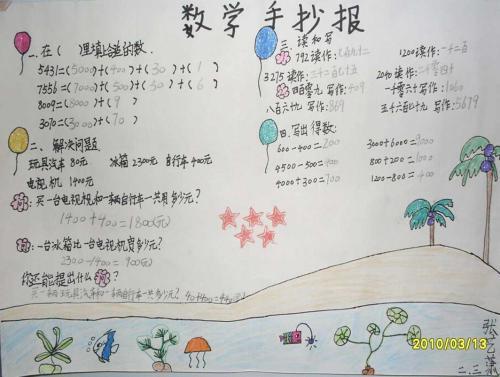 数学手抄报
一、在( )里填上合适的数.
5431=(5000)+(400)+(30)+(1)
7556=(7000)+(500)+(50)+(6)
8009=(8000)+(9)
3070=(3000)+(70)
二、解决问题
玩具汽车 80元 冰箱 2300元 自行车 400元
电视机 1400元
买一台电视机和一辆自行车一共用多少元?
1400+400=1800(元)
一台冰箱比一台电视机贵多少元?
2300-1400=900(元)
你还能提出什么?
买一辆玩具汽车和一辆自行车一共多少元?
三、读和写
792读作:七百九十二 1200读作:一千二百
3275读作:三千二百七十五 2040读作:二千零四十
四百零九 写作:409 一千零六十 写作:1060
八百六十九 写作:869 五千六百七十九 写作:5679
四、写出得数:
600-400=200 3000+6000=9000
4500-500=400 800+200=1000
4000+300=700 1200-800=400
张艺潆
二.三
2010/03/13